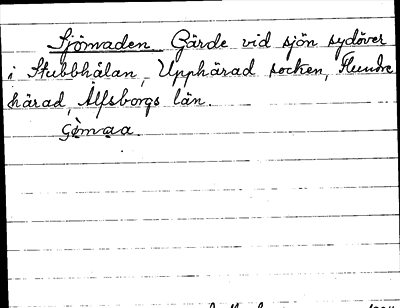 Sjömaden Gärde vid sjön sydöver
i Stubbhålan, Upphärad socken, Flundre
härad, Älfsborgs län.